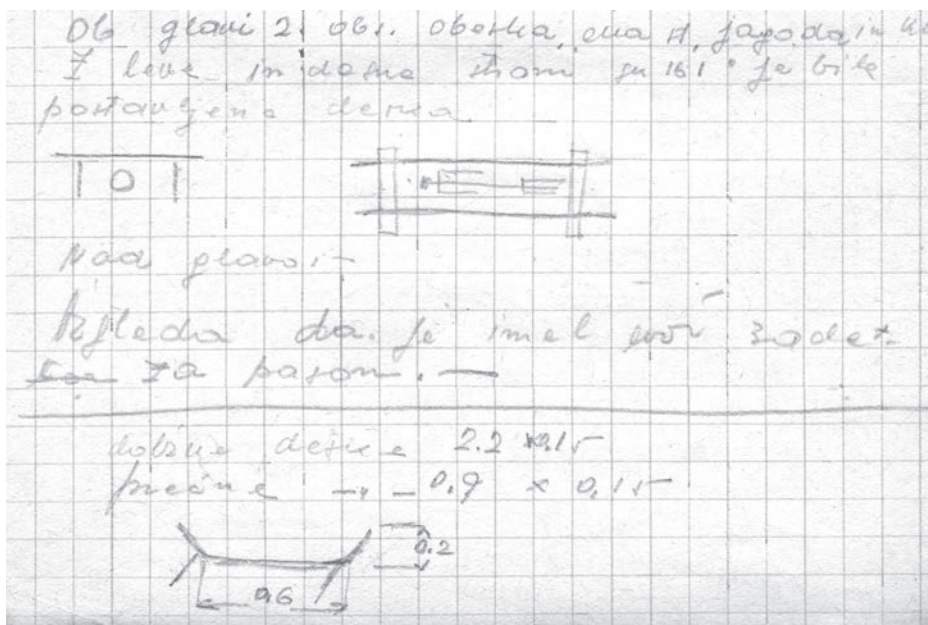 Ob glavi 2 obs. oboska, ena st. jagoda in
Z leve in desne strani je bila
postavljena deska
Nad glavo
Izgleda da je imel zadet
za pasom. —
dolžine deske 2.2 x 0,15
prečne — 0,9 x 0,15
0.2
0,6